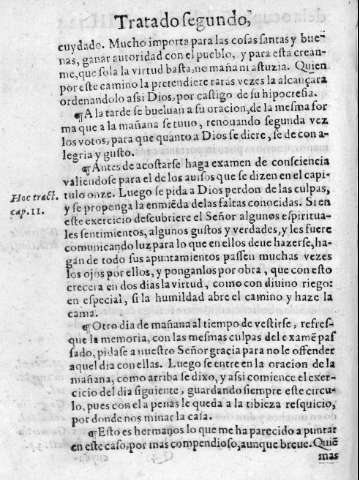 Tratado segundo,
cuydado. Mucho importa para las cosas santas y bue-
nas, ganar autoridad con el pueblo, y para esta crean-
me, que sola la virtud basta, no maña ni astuzia. Quien
por este camino la pretendiere raras vezes la alcançara
ordenandolo assi Dios, por castigo de su hipocresia.
¶A la tarde se bueluan a su oracion, de la mesma for
ma que a la mañana se tuuo, renouando segunda vez
los votos, para que quanto a Dios se diere, se de con a-
legria y gusto.
¶Antes de acostarse haga examen de consciencia
valiendose para el de los auisos que se dizen en el capi-
tulo onze. Luego se pida a Dios perdon de las culpas,
y se proponga la enmiēda de las faltas conocidas. Si en
este exercicio descubriere el Señor algunos espiritua-
les sentimientos, algunos gustos y verdades, y les fuere
comunicando luz para lo que en ellos deue hazerse, ha-
gan de todo sus apuntamientos passen muchas vezes
los ojos por ellos, y ponganlos por obra, que con esto
crecera en dos dias la virtud, como con diuino riego:
en especial, si la humildad abre el camino y haze la
cama.
Hoc tract.
cap. 11.
¶Otro dia de mañana al tiempo de vestirse, refres-
que la memoria, con las mesmas culpas del examē pas
sado, pidase a nuestro Señor gracia para no le offender
aquel dia con ellas. Luego se entre en la oracion de la
mañana, como arriba se dixo, y assi comience el exer-
cicio del dia siguiente, guardando siempre este circu-
lo, pues con el a penas le queda a la tibieza resquicio,
por donde nos minar la casa.
¶Esto es hermanos lo que me ha parecido a puntar
en este caso, por mas compendioso, aunque breue. Quiē
mas